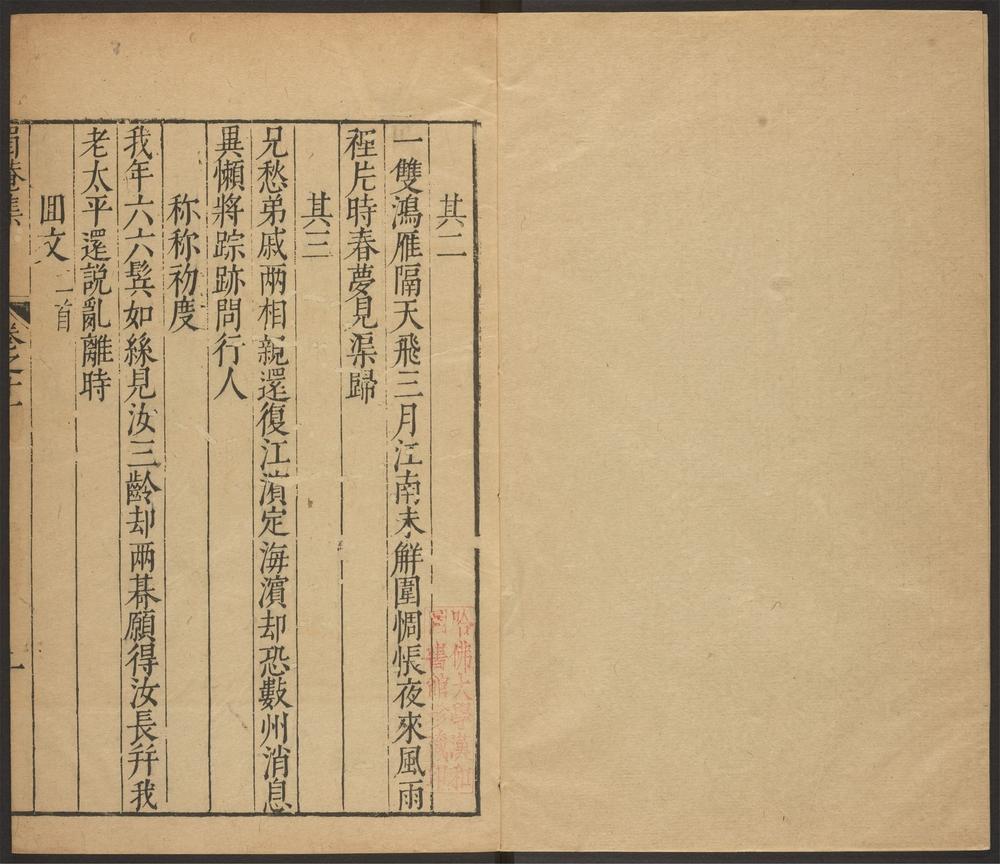 其二
一雙鴻雁隔天飛三月江南未解圍惆悵夜來風雨
裡片時春夢見渠歸
其三
兄愁弟戚兩相親還復江濆定海濱却恐數州消息
異懶將踪跡問行人
称称初度
我年六六鬂如絲見汝三齡却兩朞願得汝長幷我
老太平還説亂離時
囬文二首
菴集
卷之十
哈佛大學漢和
圖書館珍藏印